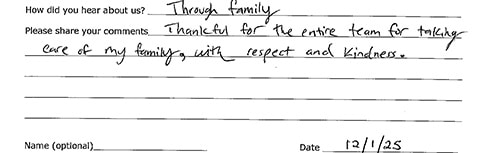 How did you hear about us? Through family
Please share your comments Thankful for the entire team for taking
care of my family, with respect and kindness.
Name (optional)
Date 12/1/25